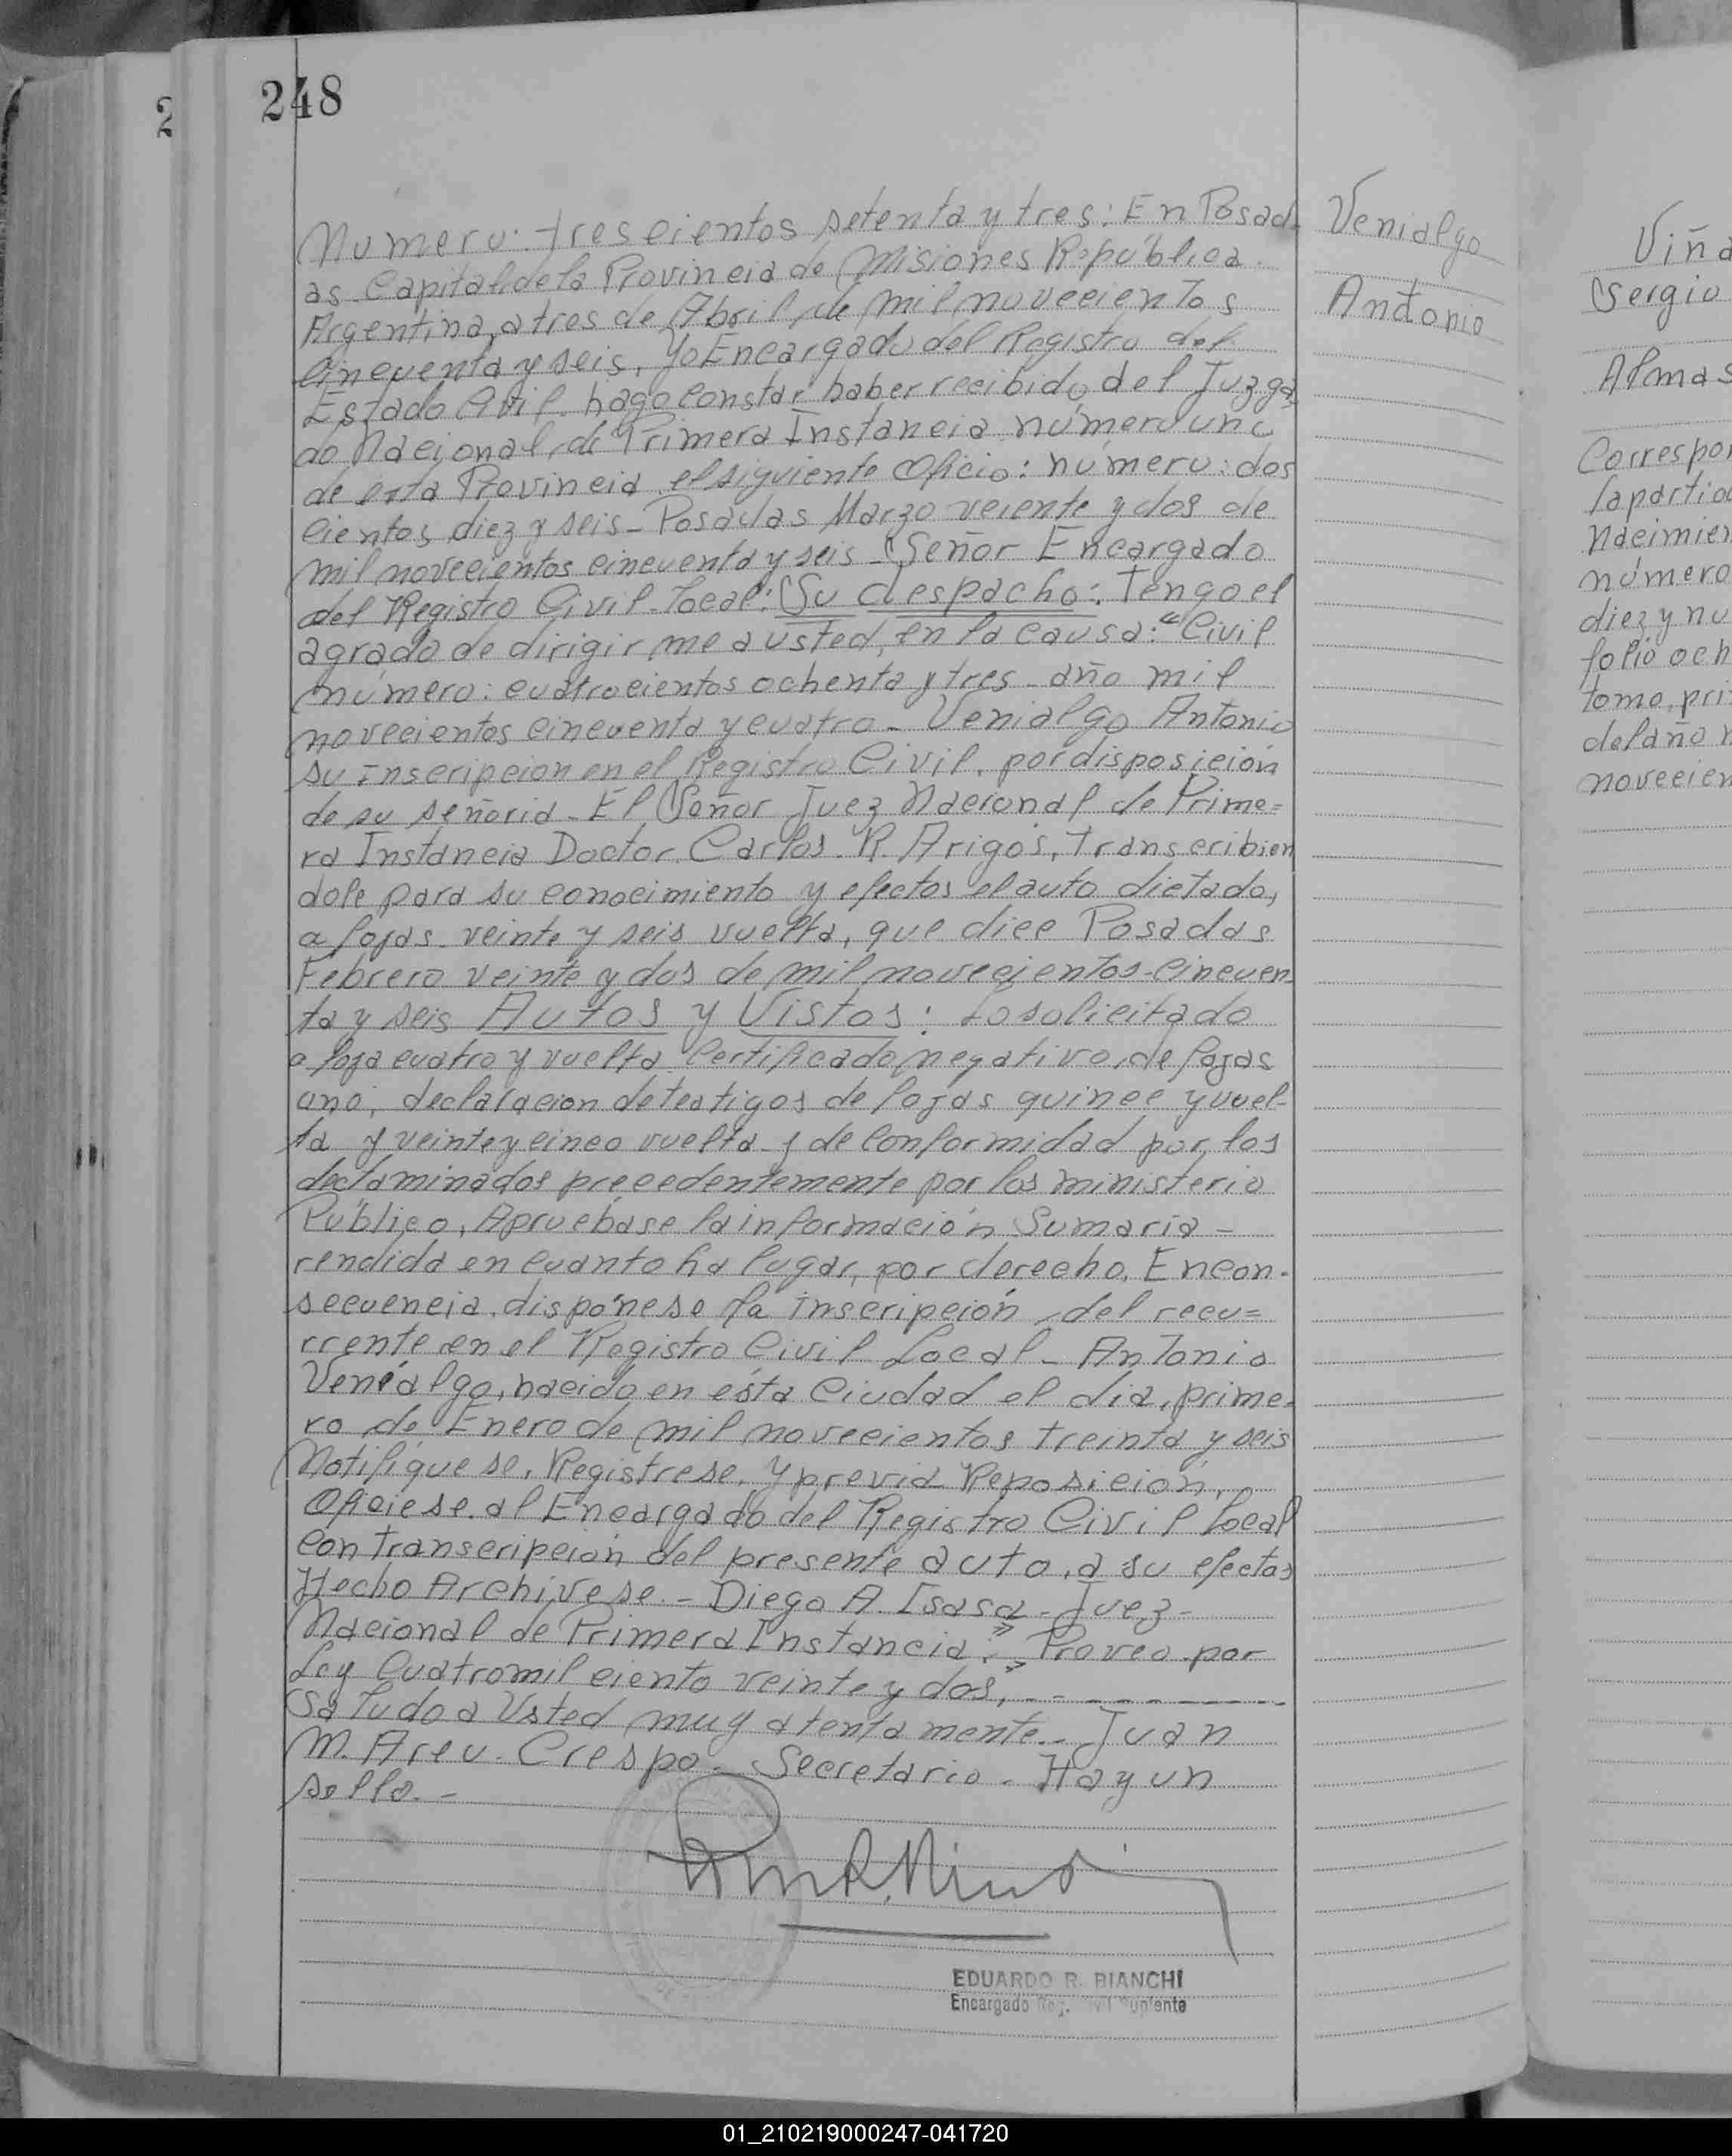 248
Venialgo
Antonio
Número: trescientos setenta y tres: En Posad-
as Capital de la Provincia de Misiones República
Argentina, a tres de Abril, de mil novecientos
Cincuenta y seis, Yo Encargado del Registro del
Estado Civil, hago constar haber recibido del Juzga
do Nacional, de Primera Instancia número uno
de esta Provincia, el siguiente Oficio: número: dos
cientos diez y seis - Posadas Marzo veiente y dos de
mil novecientos cincuenta y seis - Señor Encargado
del Registro Civil - Local: Su despacho: Tengo el
agrado de dirigir me a usted, en la causa: "Civil
número: cuatrocientos ochenta y tres - año mil
novecientos cincuenta y cuatro - Venialgo Antonio
su inscripcion en el Registro Civil, por disposición
de su señoria - El Señor Juez Nacional de Prime=
ra Instancia Doctor Carlos R. Arigós, transcribien
dole para su conocimiento y efectos el auto dictado,
a fojas veinte y seis vuelta, que dice Posadas
Febrero veinte y dos de mil novecientos - Cincuen-
ta y seis Autos y Vistos: Lo solicitado
a foja cuatro y vuelta Certificado negativo, de fojas
uno, declaracion de testigos de fojas quince y vuel-
ta y veinte y cinco vuelta y de Conformidad por los
declaminados precedentemente por los ministerio
Público, Apruébase la información Sumaria -
rendida en cuanto ha lugar, por derecho, En con-
secuencia, dispónese la inscripción, del recu=
rrente en el Registro Civil Local - Antonio
Venialgo, nacido en ésta Ciudad el dia, prime-
ro de Enero de mil novecientos treinta y seis
Notifíquese, Registrese, y previa Reposición,
Oficiese al Encargado del Registro Civil local
con transcripción del presente auto, a su efectos
Hecho Archivese. - Diego A. Isasa - Juez -
Nacional de Primera Instancia:" Proveo por
Ley Cuatromil ciento veinte y dos," - - - - - -
Saludo a Usted muy atenta mente - Juan
M. Areu Crespo - Secretario - Hay un
sello. -
EDUARDO R. BIANCHI
Encargado Reg. Civil Suplente
Viña
Sergio
Almas
Correspon
la partid
nacimien
número
diez y nu
folio och
tomo, pri
del año
novecien
01_210219000247-041720